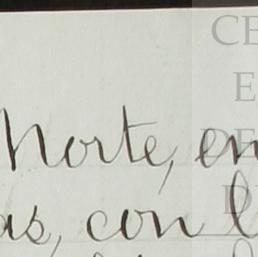 Norte, en
as, con l